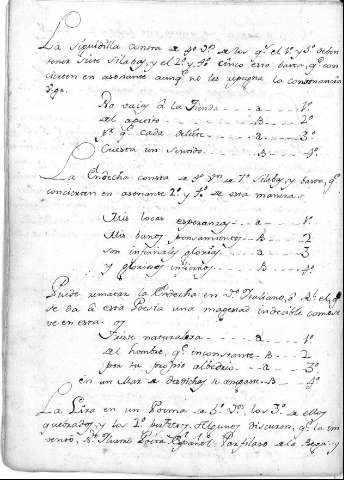 La Siguidilla consta de 4º Vºs de los ql el 1º y 3º deben
tener siete silabas, y el 2º y 4º cinco esto basta, qe con
cierten en asonante aunqe no les repugna la consonancia
Siga.
No vais á la Tienda a 1º
del B 2º
pr qe cada a 3º
Cuesta un sentido. B 4º
La Endecha consta de 4º Vºs de 7º Silabas, y basta, qe
concierten en asonante 2º y 4º de esta manera
Mis locas esperanzas a 1º
Mis banos pensamientos B 2
son glorias a 3
y gloriosos infiernos B 4º
Puede rematar la Endecha en Vº Italiano, ó el qe
se da á esta Poesia una magestad indecible como se
ve en esta
Triste naturaleza a 1º
del hombre, qe inconstante B 2
por su propio albedrio a 3º
en un Mar de B 4º
La Lira es un Poema de 5º Vºs, los 3º de ellos
quebrados, y los 2º enteros. Algunos discurren, qe la in
ventó, Poeta Español Garsilaso de la Bega. y